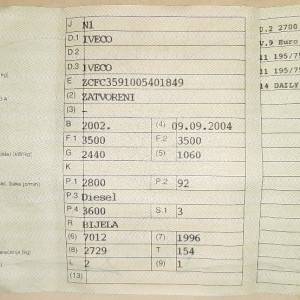 J N1
D.1 IVECO
D.2
D.3 IVECO
E ZCFC3591005401849
(2) ZATVORENI
(3) -
B 2002. (4) 09.09.2004
F.1 3500 F.2 3500
G 2440 (5) 1060
K
P.1 2800 P.2 92
P.3 Diesel
P.4 3600 S.1 3
R BIJELA
(6) 7012 (7) 1996
(8) 2729 T 154
L 2 (9) 1
(13)
.2 2700
V.9 Euro
11 195/75
11 195/75
14 DAILY